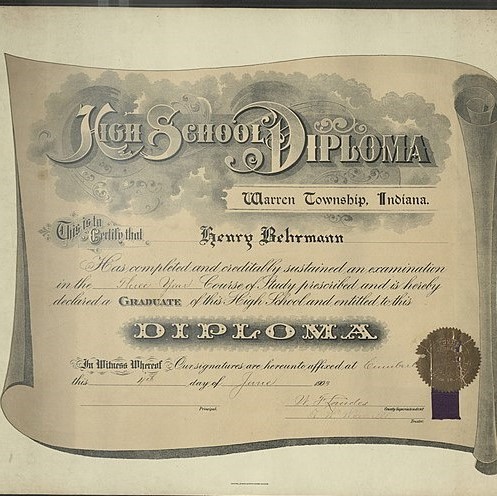 High School Diploma
Warren Township, Indiana.
This is to Certify that
Henry Behrmann
Has completed and creditably sustained an examination
in the Three Year Course of Study prescribed and is hereby
declared a GRADUATE of this High School and entitled to this
DIPLOMA
In Witness Whereof Our signatures are hereunto affixed at
this day of June
W. F. Landes
Principal. County Superintendent
Trustee